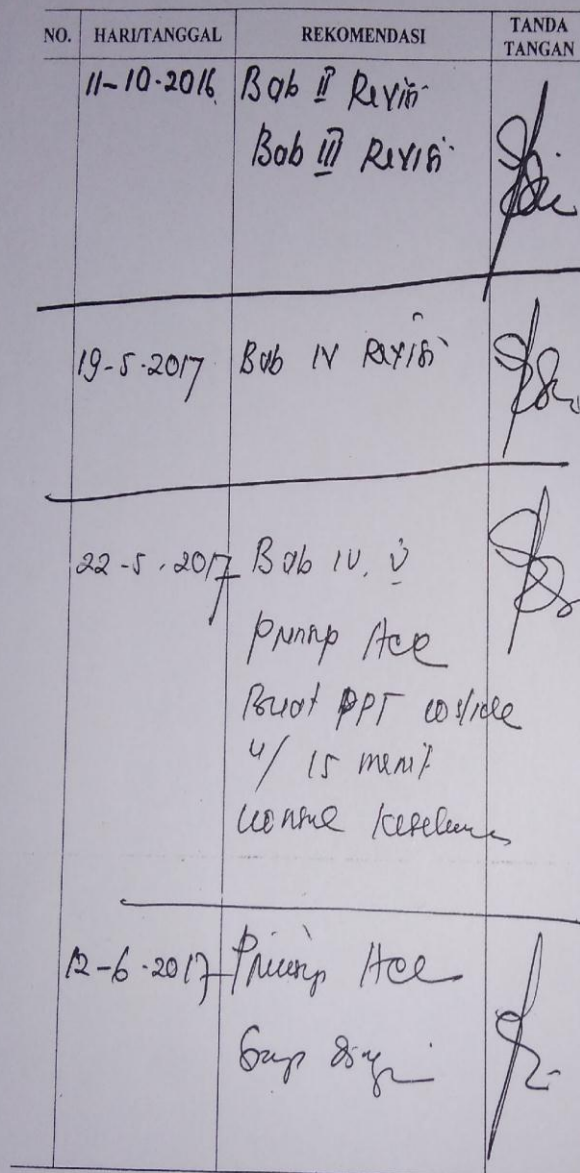 NO. HARI/TANGGAL REKOMENDASI TANDA TANGAN
11-10-2016 Bab II Revisi
Bab III Revisi
19-5-2017 Bab IV Revisi
22-5-2017 Bab IV, V
Prinsip Acc
Buat PPT 10 slide
u/ 15 menit
Konsul
12-6-2017 Prinsip Acc